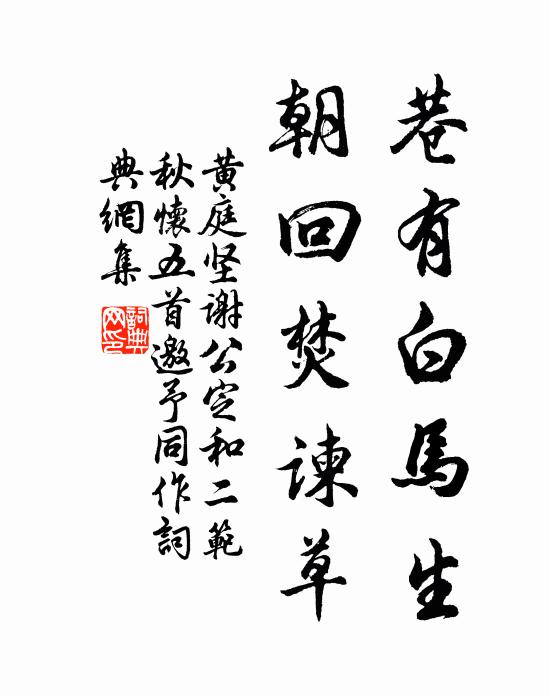 巷有白馬生
朝回焚諫草
黄庭坚谢公定和二範
秋懷五首邀予同作詞
典網集
詞典網印